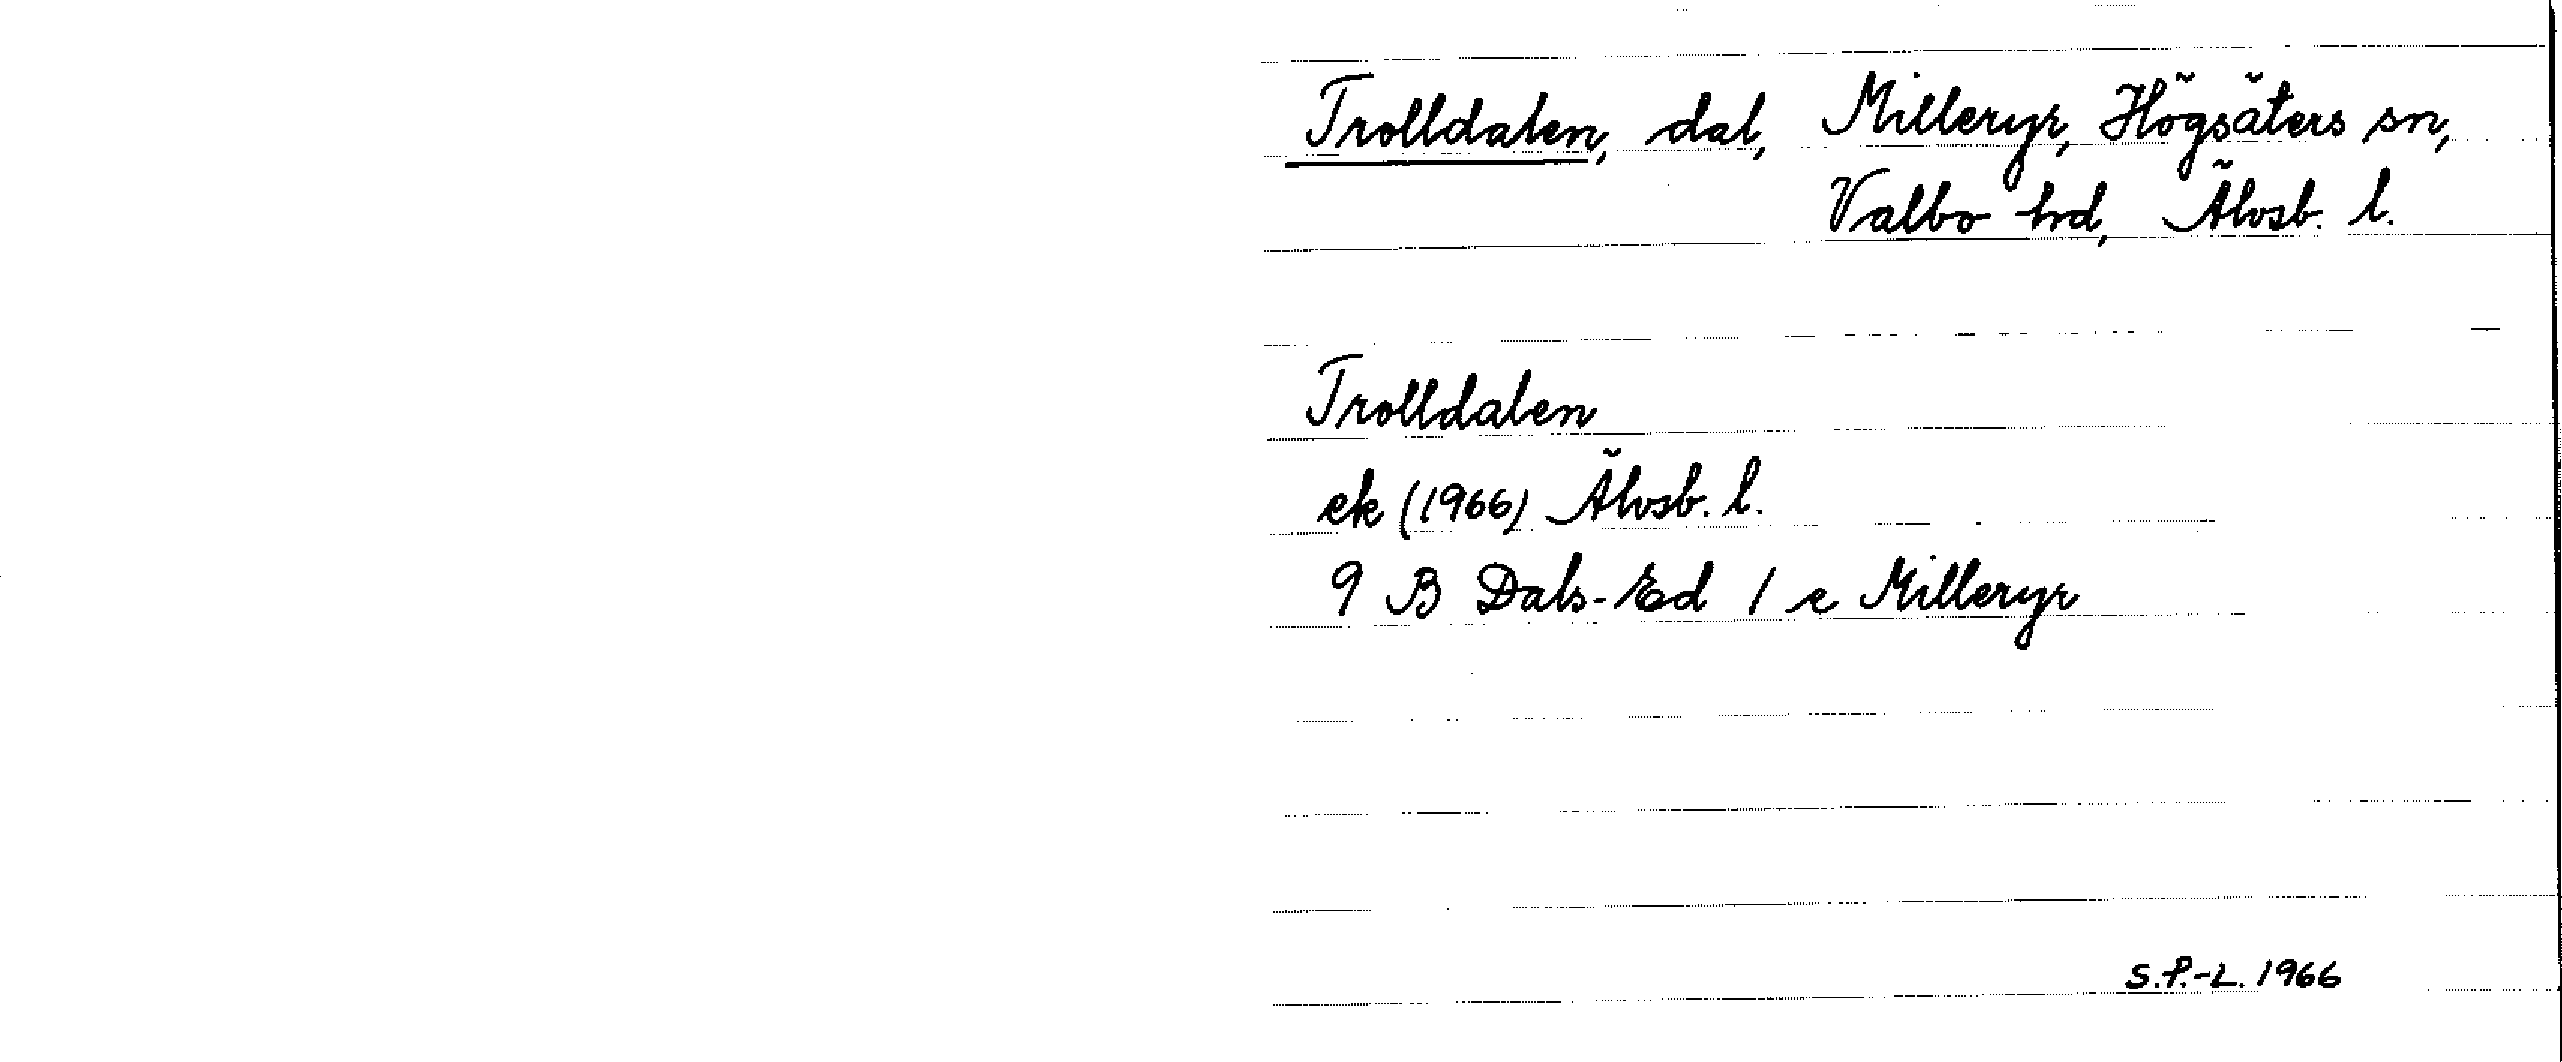 Trolldalen, dal, Milleryr, Högsäters sn,
Valbo hd, Älvsb. l.
Trolldalen
ek (1966) Älvsb. l.
9 B Dals-Ed 1 e Milleryr
S.P.-L. 1966